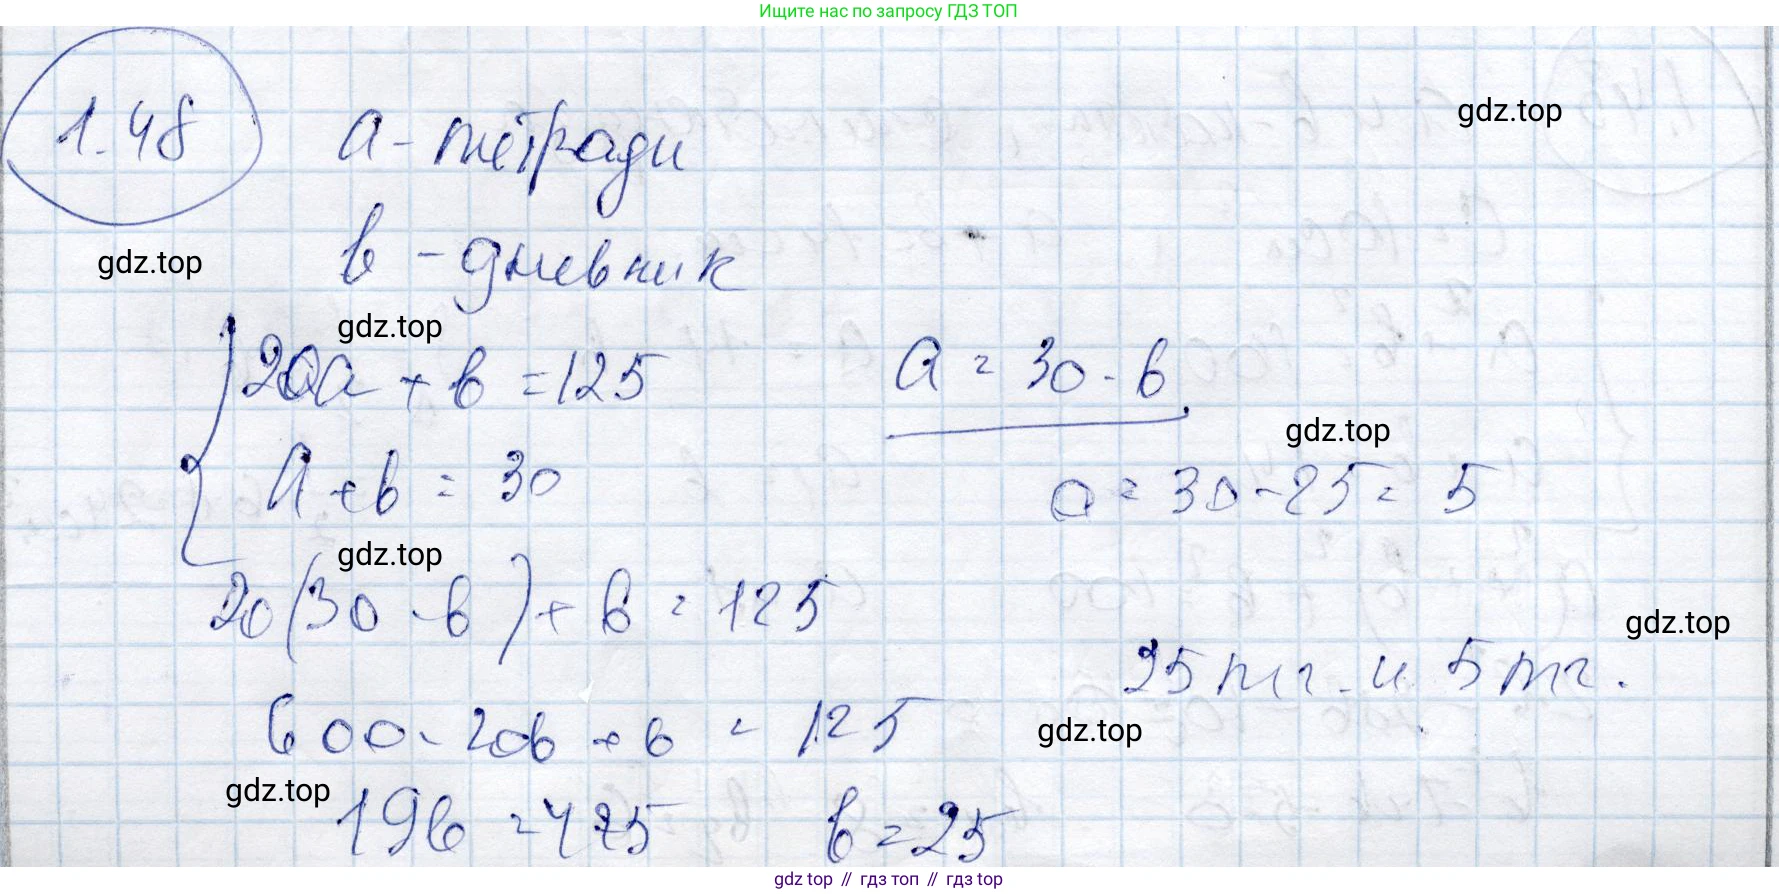 Ищите нас по запросу ГДЗ ТОП
1.48
a - тетради
gdz.top
b - дневник
gdz.top
gdz.top
20a + b = 125
a = 30 - b
a + b = 30
gdz.top
a = 30 - 25 = 5
gdz.top
20(30 - b) + b = 125
gdz.top
25 тг. и 5 тг.
600 - 20b + b = 125
gdz.top
gdz.top
19b = 475
b = 25
gdz top // гдз топ // гдз top